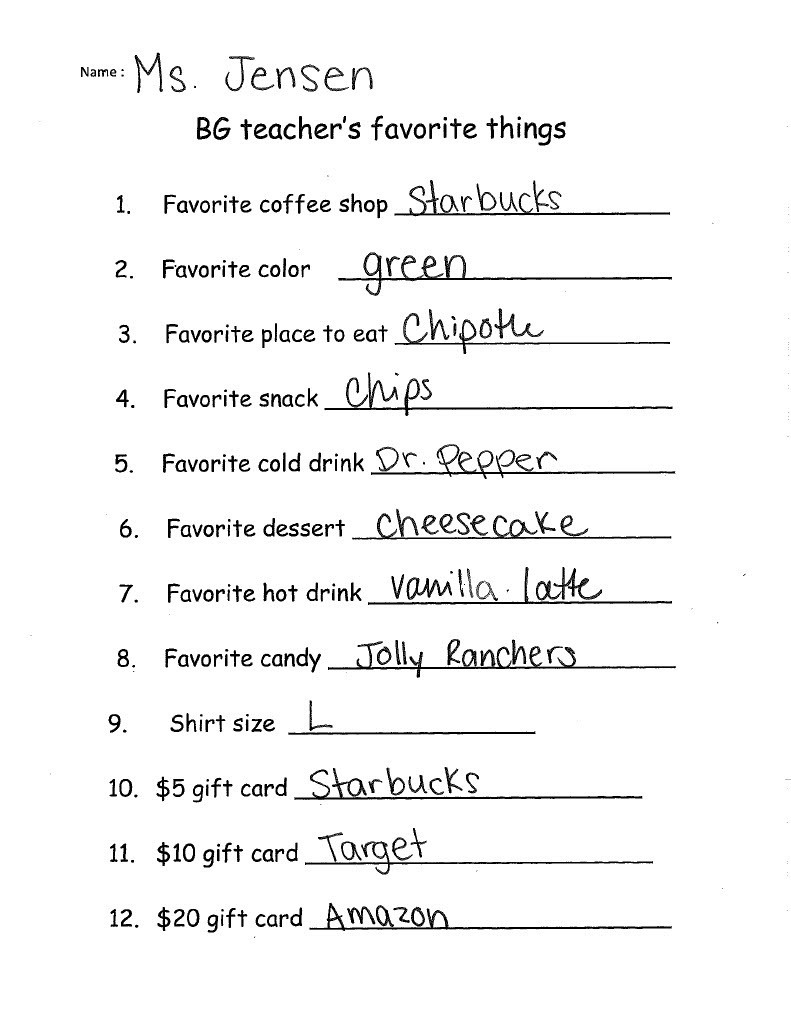 Name: Ms. Jensen
BG teacher's favorite things
1. Favorite coffee shop Starbucks
2. Favorite color green
3. Favorite place to eat Chipotle
4. Favorite snack Chips
5. Favorite cold drink Dr. Pepper
6. Favorite dessert cheesecake
7. Favorite hot drink vanilla latte
8. Favorite candy Jolly Ranchers
9. Shirt size L
10. $5 gift card Starbucks
11. $10 gift card Target
12. $20 gift card Amazon